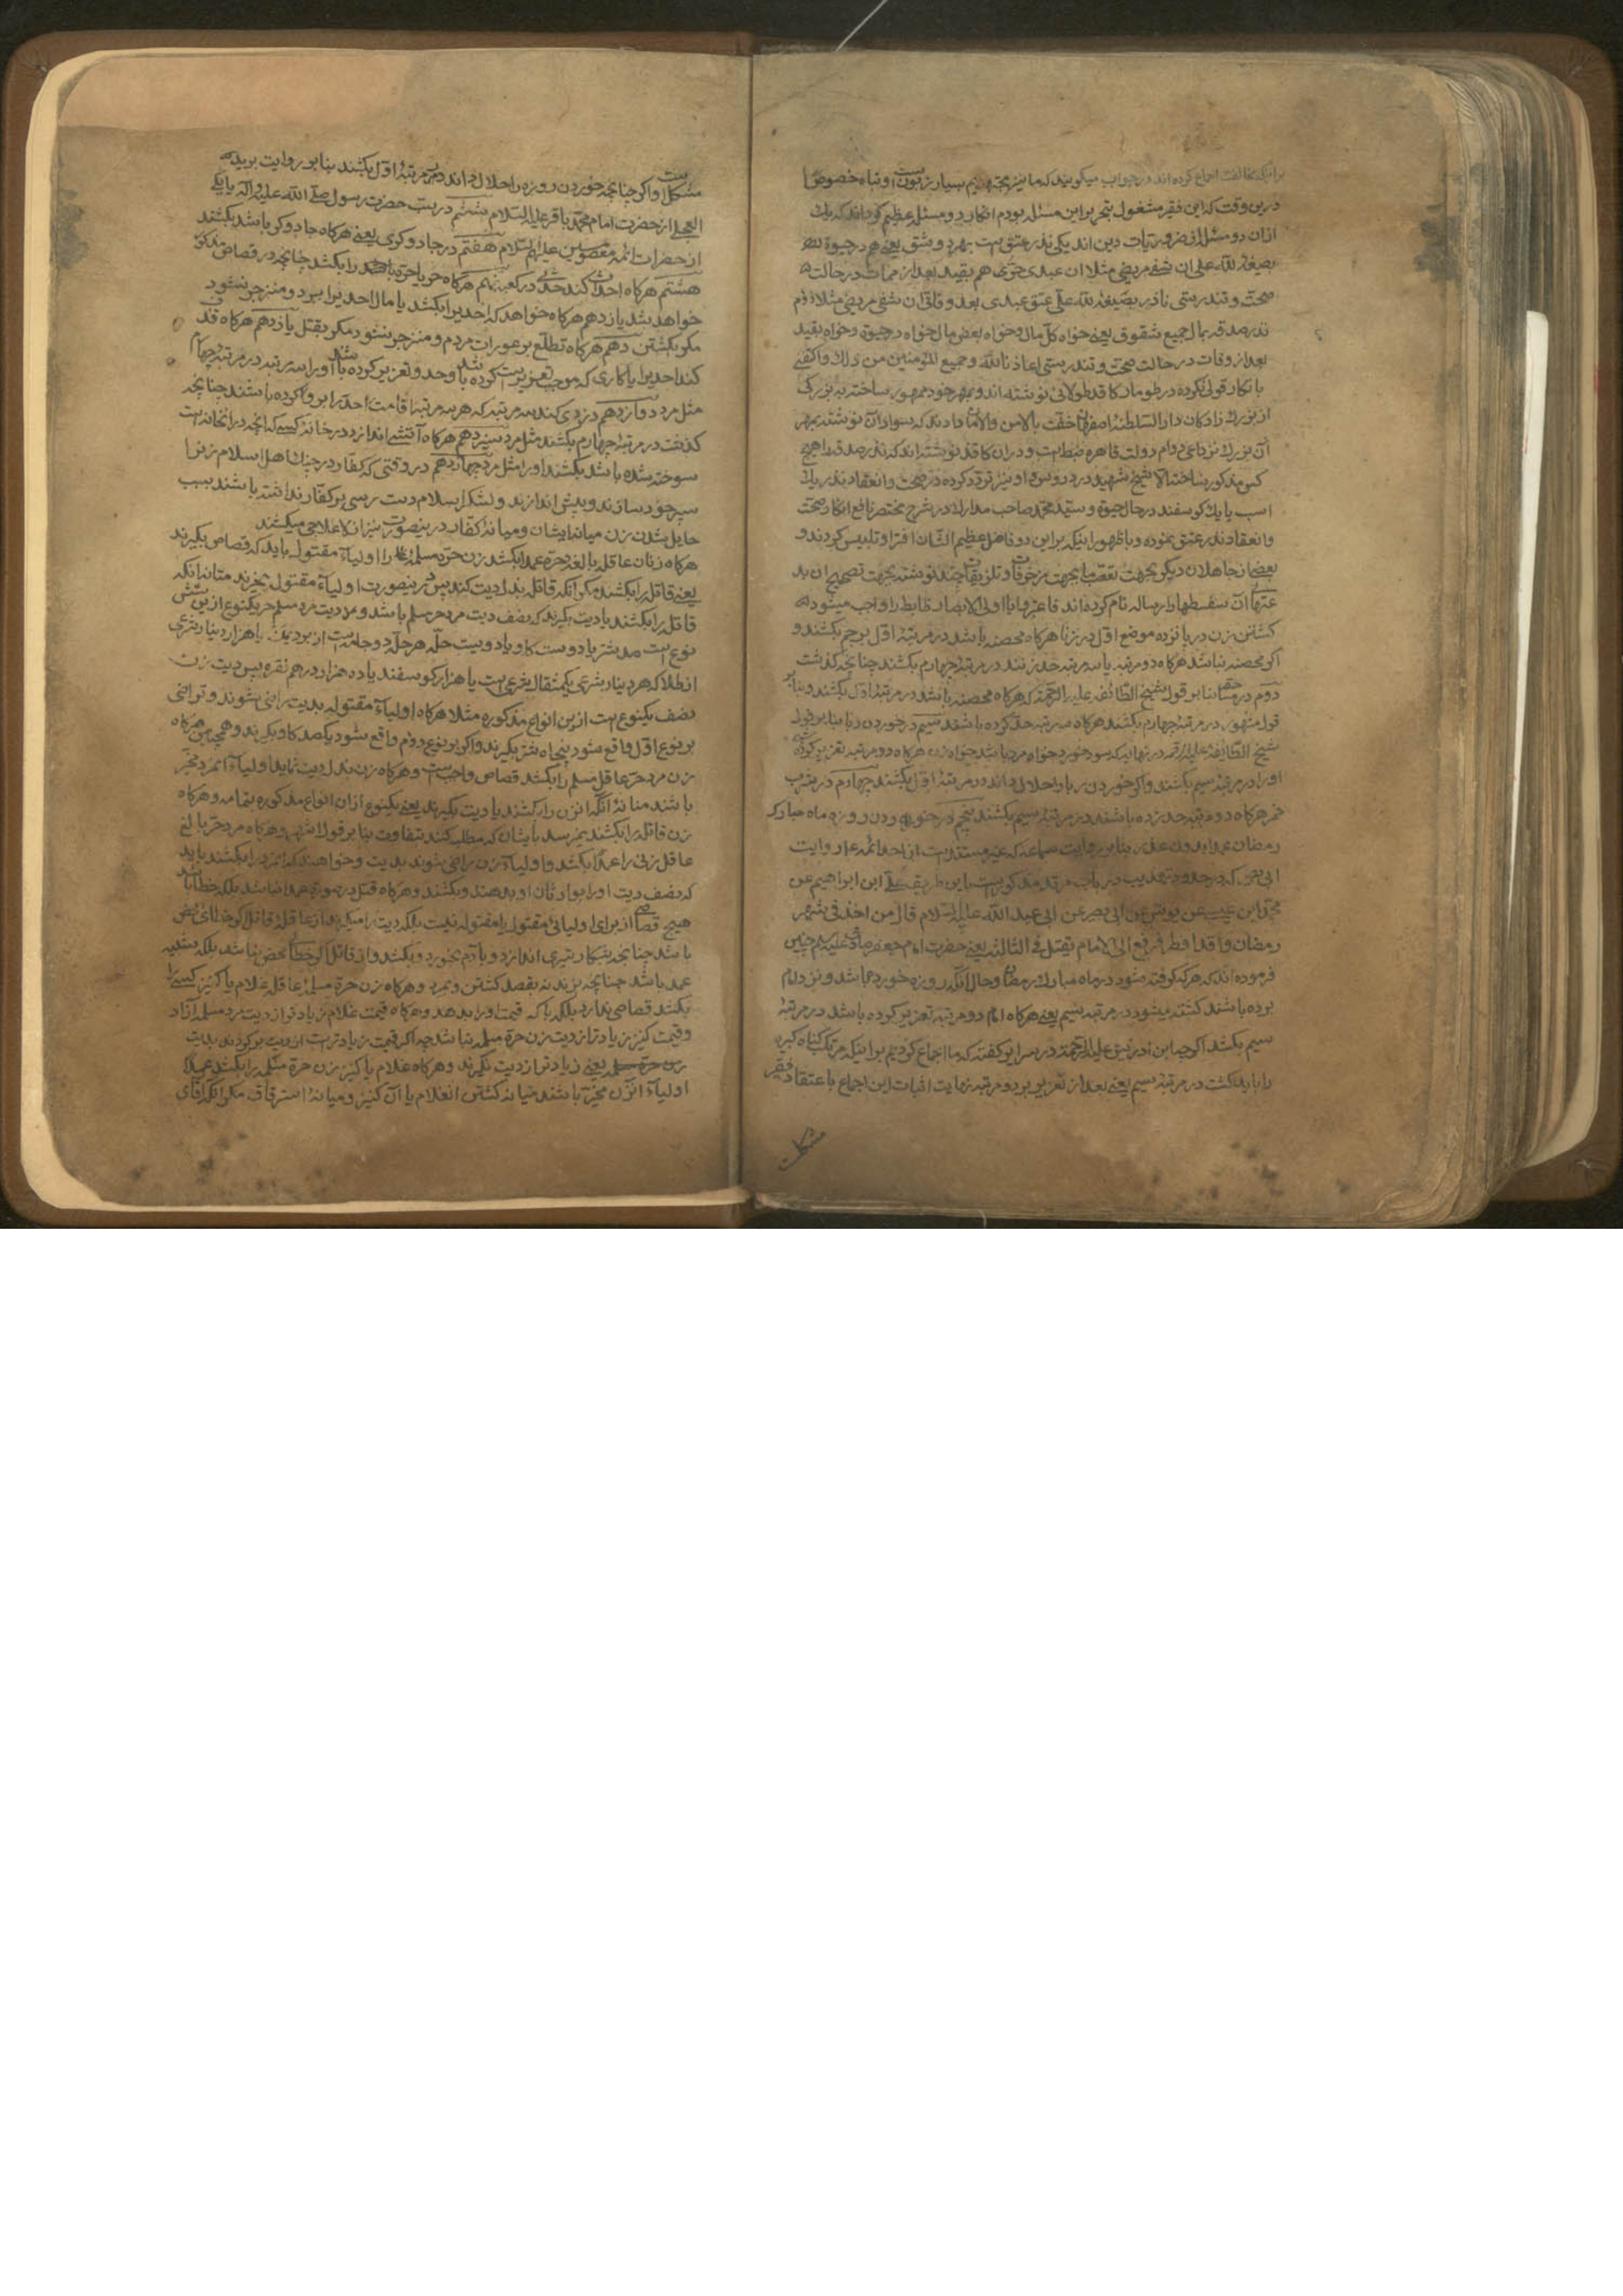 برانیکه مخالفت اجماع کرده اند در جواب میکویند که ما نیز بسیار او نباه خصوصا
درین وقت که این فقیر مشغول بتحریر این مسئله بودم انکار دو مسئله عظیم کرده اند که
ازان دو مسئله از ضروریات دین اند یکی نذر عتق است بهر دو شق یعنی هم در حیوة
بصیغه لله علی ان شفی مریضی مثلا ان عبدی حر هم بقید بعد از ممات در حالت
صحت و تندرستی ناذر بصیغه لله علی عتق عبدی بعد وفاتی ان شفی مریضی مثلا دوم
نذر صدقه بمال بجمیع شقوق یعنی خواه کل مال و خواه بعض مال خواه در حیوة و خواه بقید
بعد از وفات در حالت صحت و تندرستی اعاذنا الله وجمیع المؤمنین من ذلک واکتفی
بانکار قولی نکرده در طومار کاغد طولانی نوشته اند و بمهر خود ممهور ساخته به بزرکی
از بزرک زادکان دار السلطنه اصفهان حفت بالامن والامان داده اند که سواد آن نوشته بمهر
آن بزرک نزد داعی دوام دولت قاهره ضبط است و در ان کاغد نوشته اند که نذر صدقه را هیچ
کس مذکور نساخته الا شیخ شهید در دروس و او نیز تردد کرده در صحت و انعقاد نذر یک
اسب یا یک کوسفند در حال حیوة و سید محمد صاحب مدارک در شرح مختصر نافع انکار صحت
و انعقاد نذر عتق نموده و با ظهور اینکه براین دو فاضل عظیم الشان افترا و تلبیس کردند و
بعضی از جاهلان دیکر بجهت تعصب یا بجهت مزخرفات و تلزیقات چند نوشته بجهت تصحیح ان
آن سفسطها را رساله نام کرده اند فاعتبروا یا اولی الابصار ضابطه واجب میشود
کشتن زن در پانزده موضع اول در زنا هرکاه محصنه باشد در مرتبه اول برجم بکشند و
اکر محصنه نباشد هرکاه دو مرتبه یا سه مرتبه حد زنند در مرتبه چهارم بکشند چنانچه کذشت
دوم در مساحقه بنا بر قول شیخ الطائفه علیه الرحمة که هرکاه محصنه باشد در مرتبه اول بکشند و بنا بر
قول مشهور در مرتبه چهارم بکشند هرکاه سه مرتبه حد کرده باشند سیم در خوردن ربا بنا بر قول
شیخ الطائفه علیه الرحمه در نهایه که سود خور خواه مرد باشد خواه زن هرکاه دو مرتبه تعزیر کرده شود
او را در مرتبه سیم بکشند و اکر خوردن ربا را حلال داند در مرتبه اول بکشند چهارم در شرب
خمر هرکاه دو مرتبه حد زده باشند در مرتبه سیم بکشند پنجم در خوردن روزه ماه مبارک
رمضان عمدا بدون عذر بنا بر روایت سماعه که غیر مستند است از احد ائمه ع و روایت
ابی بصیر که در حدود تهذیب در باب مرتد مذکور است باین طریق علی ابن ابراهیم عن
محمد ابن عیسی عن یونس عن ابی بصیر عن ابی عبد الله علیه السلام قال من اخذ فی شهر
رمضان وقد افطر فرفع الی الامام یقتل فی الثالثه یعنی حضرت امام جعفر صادق علیه السلام چنین
فرموده اند که هرکه کرفته شود در ماه مبارک رمضان وحال آنکه روزه خورده باشد و نزد امام
برده باشند کشته میشود در مرتبه سیم یعنی هرکاه امام دو مرتبه تعزیر کرده باشد در مرتبه
سیم بکشد اکرچه ابن ادریس علیه الرحمة در سرایر کفته که ما اجماع کردیم براینکه مرتکب کناه کبیره
را باید کشت در مرتبه سیم یعنی بعد از تعزیر بر دو مرتبه نهایت اثبات این اجماع باعتقاد فقیر
مشکلست
مشکلست و اکر چنانچه خوردن روزه را حلال داند در مرتبه اول بکشند بنا بر روایت برید
العجلی از حضرت امام محمد باقر علیه السلام ششم در سب حضرت رسول صلی الله علیه وآله یا یکی
از حضرات ائمه معصومین علیهم السلام هفتم در جادوکری یعنی هرکاه جادوکر باشد بکشند
هشتم هرکاه احداث کند حدثی در کعبه نهم هرکاه حر یا حره را بکشد چنانچه در قصاص مذکور
خواهد شد یازدهم هرکاه خواهد که احدیرا بکشد یا مال احدیرا ببرد و منزجر نشود
مکر بکشتن دهم هرکاه تطلع بر عورات مردم و منزجر نشود مکر بقتل یازدهم هرکاه قذف
کند احدیرا یا کاری که موجب تعزیر است کرده باشد وحد و تعزیر کرده باشد او را سه مرتبه در مرتبه چهارم
مثل مرد دوازدهم دزدی کند سه مرتبه که هر سه مرتبه اقامت احد را برو کرده باشند چنانچه
کذشت در مرتبه چهارم بکشند مثل مرد سیزدهم هرکاه آتش اندازد در خانه کسی که آنچه در انخانه است
سوخته شده باشد بکشند او را مثل مرد چهاردهم در وقتی که کفار در جنک اهل اسلام زنرا
سپر خود سازند و پیش اندازند و لشکر اسلام دست رسی بر کفار نداشته باشند بسبب
حایل شدن زن میانه ایشان و میانه کفار درینصورت نیز از لاعلاجی میکشند
هرکاه زنان عاقله بالغه حره عمدا بکشد زن حره مسلمه را اولیاء مقتوله باید که قصاص بکیرند
یعنی قاتله را بکشند مکر آنکه قاتله بذل دیت کند پس درینصورت اولیاء مقتوله مخیرند میانه آنکه
قاتله را بکشند یا دیت بکیرند که نصف دیت مرد حر مسلم باشد و مرد دیت مرد مسلم حر یکنوع ازین شش
نوع است صد شتر یا دویست کاو یا دویست حله هر حله دو جامه است از برد یمن یا هزار دینار شرعی
از طلا که هر دینار شرعی یکمثقال شرعی است یا هزار کوسفند یا ده هزار درهم نقره پس دیت زن
نصف یکنوع است ازین انواع مذکوره مثلا هرکاه اولیاء مقتوله بدیت راضی شوند و تراضی
بر نوع اول واقع شود پنجاه شتر بکیرند و اکر بر نوع دوم واقع شود یکصد کاو بکیرند و همچنین هرکاه
زن مرد حر عاقل مسلم را بکشد قصاص واجب است و هرکاه زن بذل دیت نماید اولیاء آنمرد مخیر
باشند میانه آنکه آنزن را بکشند یا دیت بکیرند یعنی یکنوع از ان انواع مذکوره بتمامه و هرکاه
زن قاتله را بکشند نمیرسد بایشان که مطلب کنند تفاوت بنا بر قول اشهر و هرکاه مرد حر بالغ
عاقل زنی را عمدا بکشد و اولیاء زن راضی نشوند بدیت و خواهند که آنمرد را بکشند باید
که نصف دیت او را بوارثان او بدهند و بکشند و هرکاه قتل در صورت عمد نباشد بلکه خطا باشد
هیچ قصاصی از برای اولیای مقتول یا مقتوله نیست بلکه دیت را میکیرند از عاقله قاتل اکر خطای محض
باشد چنانچه بشکار تیری اندازد و بآدم بخورد و بکشد و از قاتل اکر خطا محض نباشد بلکه شبیه
عمد باشد چنانچه بزند نه بقصد کشتن و بمیرد و هرکاه زن حره مسلمه عاقله غلام یا کنیز کسی را
بکشد قصاص ندارد بلکه باید که قیمت او را بدهد و هرکاه قیمت غلام زیادتر از دیت مرد مسلم آزاد
و قیمت کنیز زیادتر از دیت زن حره مسلمه نباشد چه اکر قیمت زیادتر است از دیت بر کردد بدیت
زن حره مسلمه یعنی زیادتر از دیت نکیرند و هرکاه غلام یا کنیز زن حره مسلمه را بکشد عمدا
اولیاء آنزن مخیر باشند میانه کشتن انغلام یا آن کنیز و میانه استرقاق مکر آنکه آقای